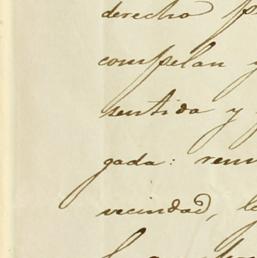 derecho p
compelan y
sentida y
gada: renu
vecindad, l